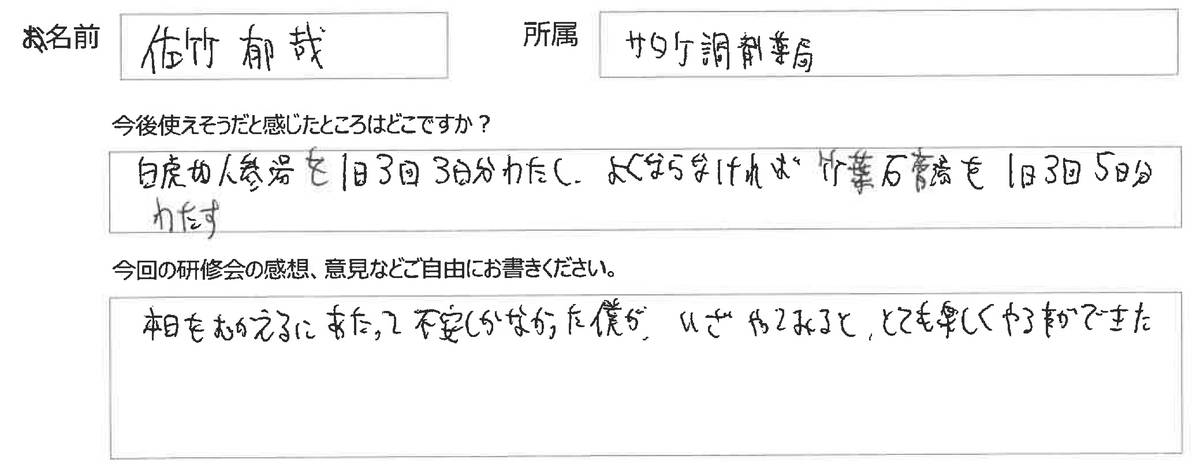 お名前 佐竹 郁哉 所属 サタケ調剤薬局
今後使えそうだと感じたところはどこですか？
白虎加人参湯を1日3回3日分わたし、よくならなければ竹葉石膏湯を1日3回5日分
わたす
今回の研修会の感想、意見などご自由にお書きください。
本日をむかえるにあたって不安しかなかった僕が、いざやってみると、とても楽しくやる事ができた